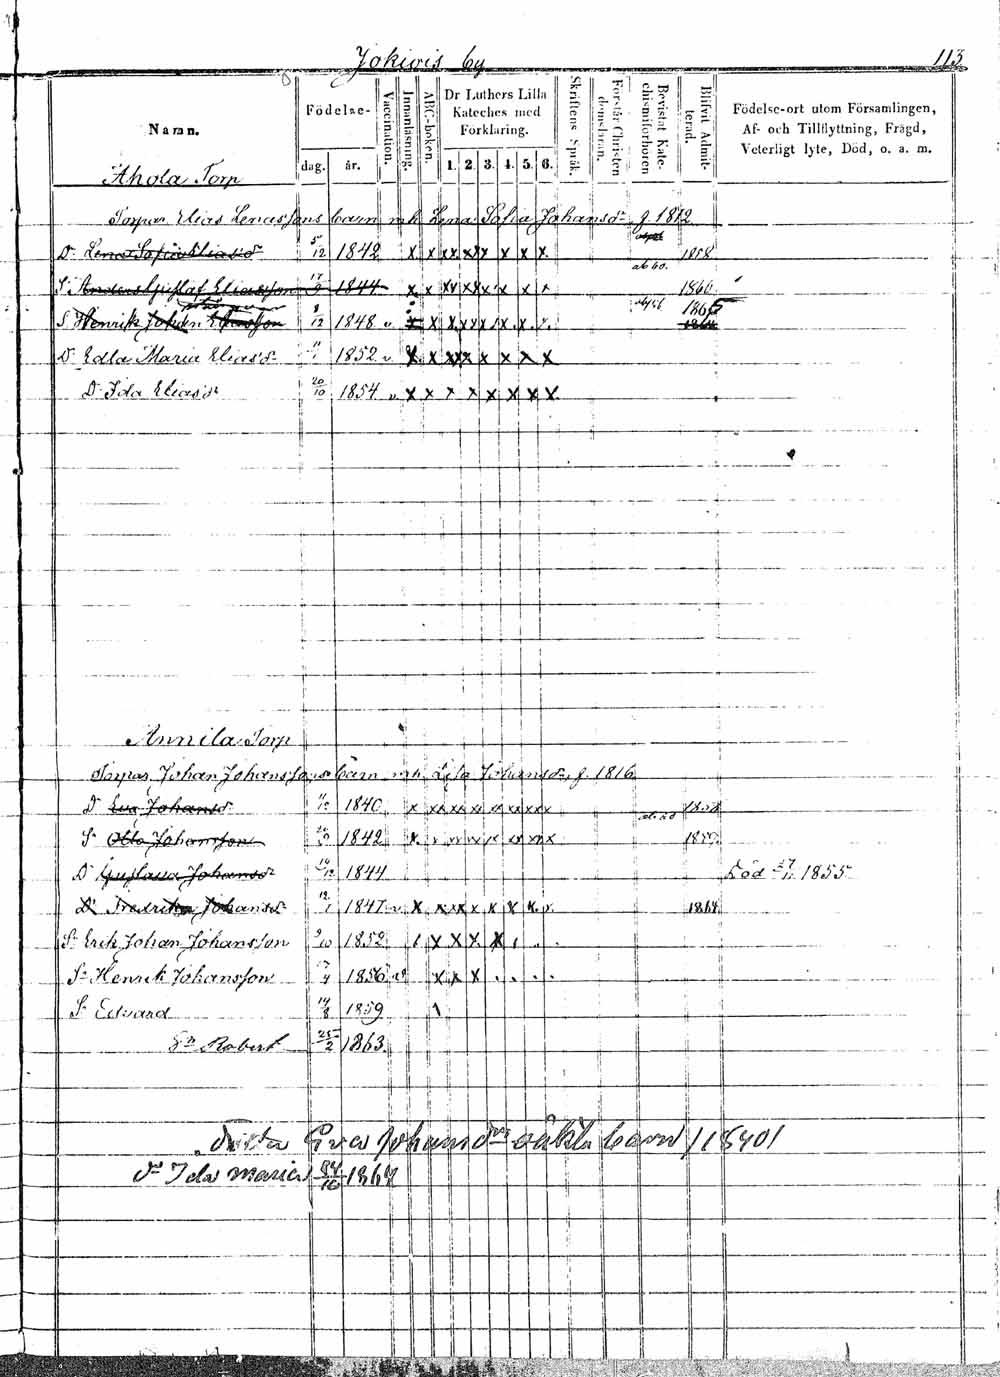 Jokiois by 113
Namn. Födelse- dag. år. Vaccination. Innanläsning. ABC-boken. Dr Luthers Lilla Kateches med Förklaring. 1. 2. 3. 4. 5. 6. Skriftens Språk. Förstår Christendomsläran. Bevistat Katechismiförhören Blifvit Admitterad. Födelse-ort utom Församlingen, Af- och Tillflyttning, Frägd, Veterligt lyte, Död, o. a. m.
Ahola Torp
Torpar Elias Lenasfons barn m. h. Lena Sofia Johansdr f 1812
Dr Lena Sofia Eliasdr 5/12 1842 x x xx xxx x x x 1858
Sn Anders Gustaf Eliasson 1844 x x xx xxx x x x 1860
Sn Henrik Johan Eliasson 1848 v x x x xxx x x 1865
Dr Edla Maria Eliasdr 11/1 1852 v x x xxx x x x x
Dr Ida Eliasdr 20/10 1854 v x x x x x x x x
Annila Torp
Torpar Johan Johansfons barn m. h. Johansdr f. 1816
Dr Eva Johansdr 1840 x xx xx xx x xx xxx 1858
Sn Otto Johansson 1842 x 1859
Dr Gustava Johansdr 1844 Död 1855
Dr Fredrika Johansdr 12/1 1847 v x x xx x x x x 1864
Sn Erik Johan Johansson 9/10 1852 x x x x
Sn Henrik Johansson 17/4 1856 v x x x
Sn Edvard 14/8 1859
Sn Robert 25/2 1863
Eva Johansdrs oäkta barn /1840/
Dr Ida Maria 24/10 1867